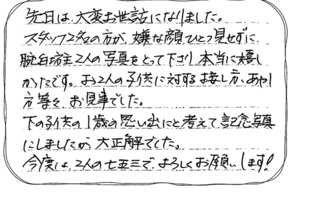 先日は大変お世話になりました。
スタッフ2名の方が、嫌な顔ひとつ見せずに、
腕白坊主2人の写真をとって下さり本当に嬉し
かったです。お2人の子供に対する接し方、あやし
方等々、お見事でした。
下の子供の1歳の思い出にと考えて記念写真
にしましたが、大正解でした。
今度は、2人の七五三でよろしくお願いします!